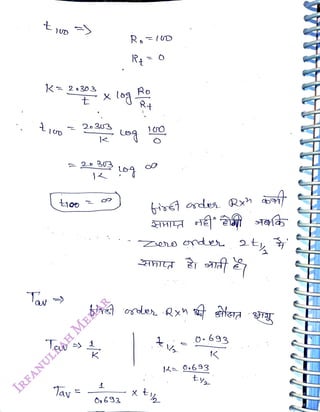 t₁₀₀ ⇒
R₀ = 100
Rt = 0
K = 2.303/t × log R₀/Rt
t₁₀₀ = 2.303/K log 100/0
= 2.303/K log ∞
t₁₀₀ = ∞
first order Rxⁿ कभी
समाप्त नहीं होगी जबकि
zero order 2t₁/₂ में
समाप्त हो जाती है
Tav ⇒
first order Rxⁿ की औसत आयु
Tav ⇒ 1/K
t₁/₂ = 0.693/K
K = 0.693/t₁/₂
Tav = 1/0.693 × t₁/₂
IRFANULLAH